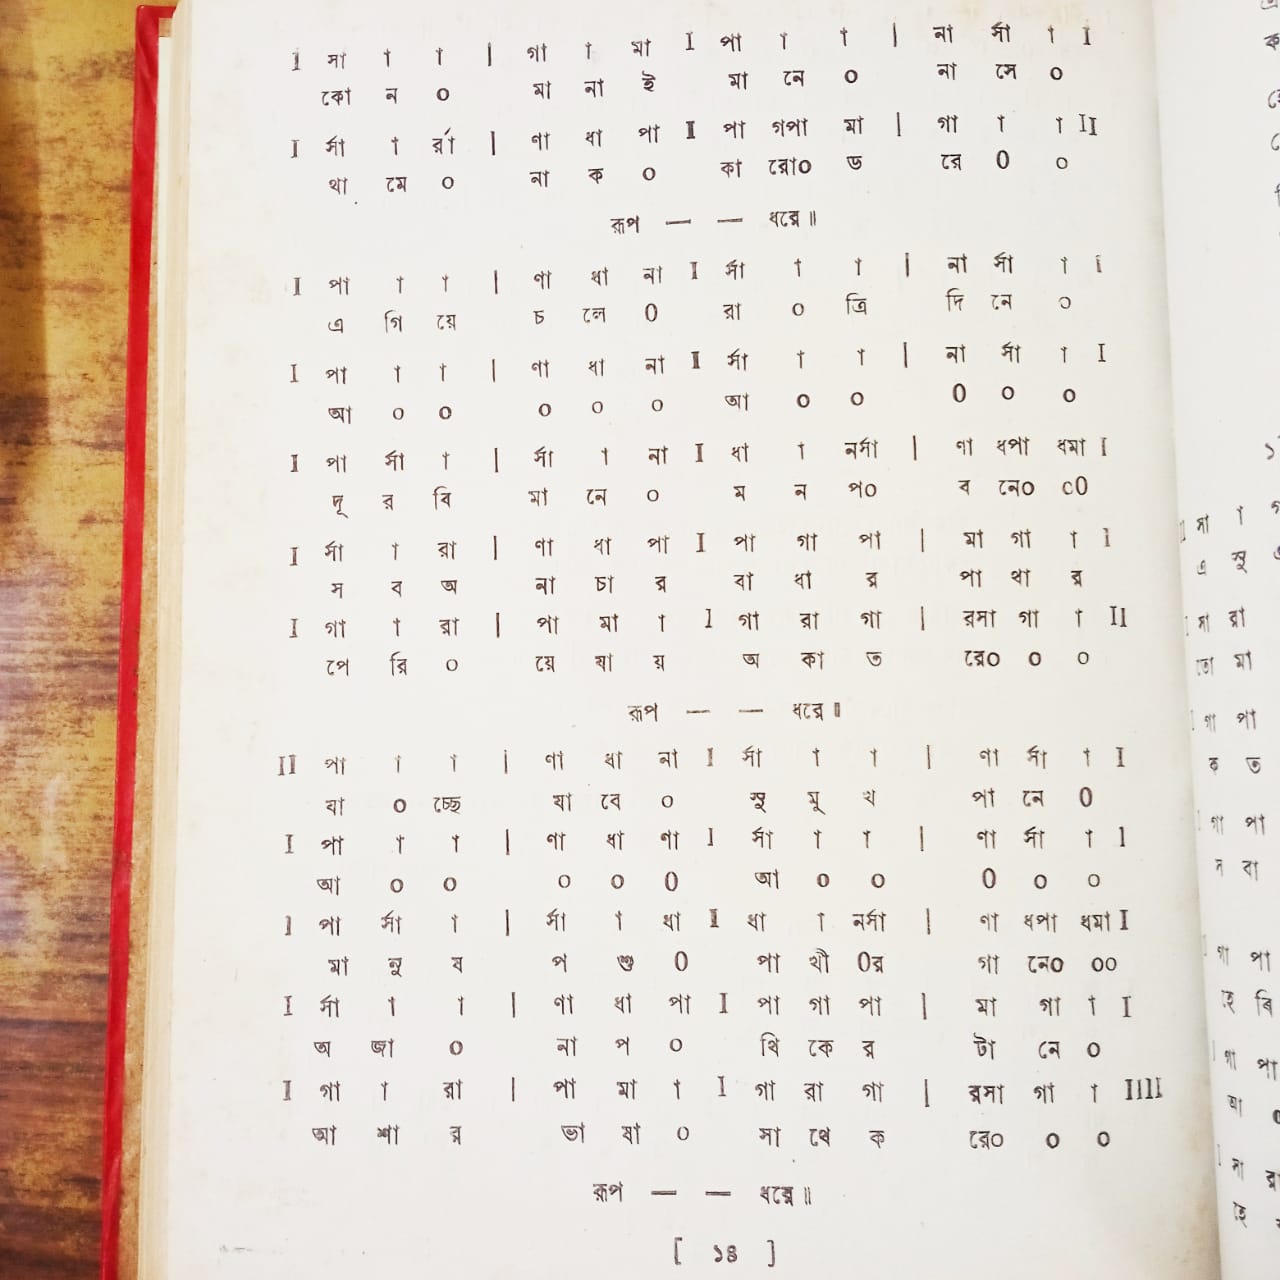 I সা † † | গা † মা I পা † † | না র্সা † I
কো ন ০ মা না ই মা নে ০ না সে ০
I র্সা † র্রা | ণা ধা পা I পা গপা মা | গা † † II
থা মে ০ না ক ০ কা রো০ ত রে ০ ০
রূপ — — ধরে॥
I পা † † | ণা ধা না I র্সা † † | না র্সা † I
এ গি য়ে চ লে ০ রা ০ ত্রি দি নে ০
I পা † † | ণা ধা না I র্সা † † | না র্সা † I
আ ০ ০ ০ ০ ০ আ ০ ০ ০ ০ ০
I পা র্সা † | র্সা † না I ধা † নর্সা | ণা ধপা ধমা I
দূ র বি মা নে ০ ম ন প০ ব নে০ ০০
I র্সা † রা | ণা ধা পা I পা গা পা | মা গা † I
স ব অ না চা র বা ধা র পা থা র
I গা † রা | পা মা † I গা রা গা | রসা গা † II
পে রি ০ য়ে যা য় অ কা ত রে০ ০ ০
রূপ — — ধরে॥
II পা † † | ণা ধা না I র্সা † † | ণা র্সা † I
যা ০ চ্ছে যা বে ০ সু মু খ পা নে ০
I পা † † | ণা ধা ণা I র্সা † † | ণা র্সা † I
আ ০ ০ ০ ০ ০ আ ০ ০ ০ ০ ০
I পা র্সা † | র্সা † ধা I ধা † নর্সা | ণা ধপা ধমা I
মা নু ষ প শু ০ পা খী ০র গা নে০ ০০
I র্সা † † | ণা ধা পা I পা গা পা | মা গা † I
অ জা ০ না প ০ থি কে র টা নে ০
I গা † রা | পা মা † I গা রা গা | রসা গা † IIII
আ শা র ভা ষা ০ সা থে ক রে০ ০ ০
রূপ — — ধরে॥
[ ১৪ ]